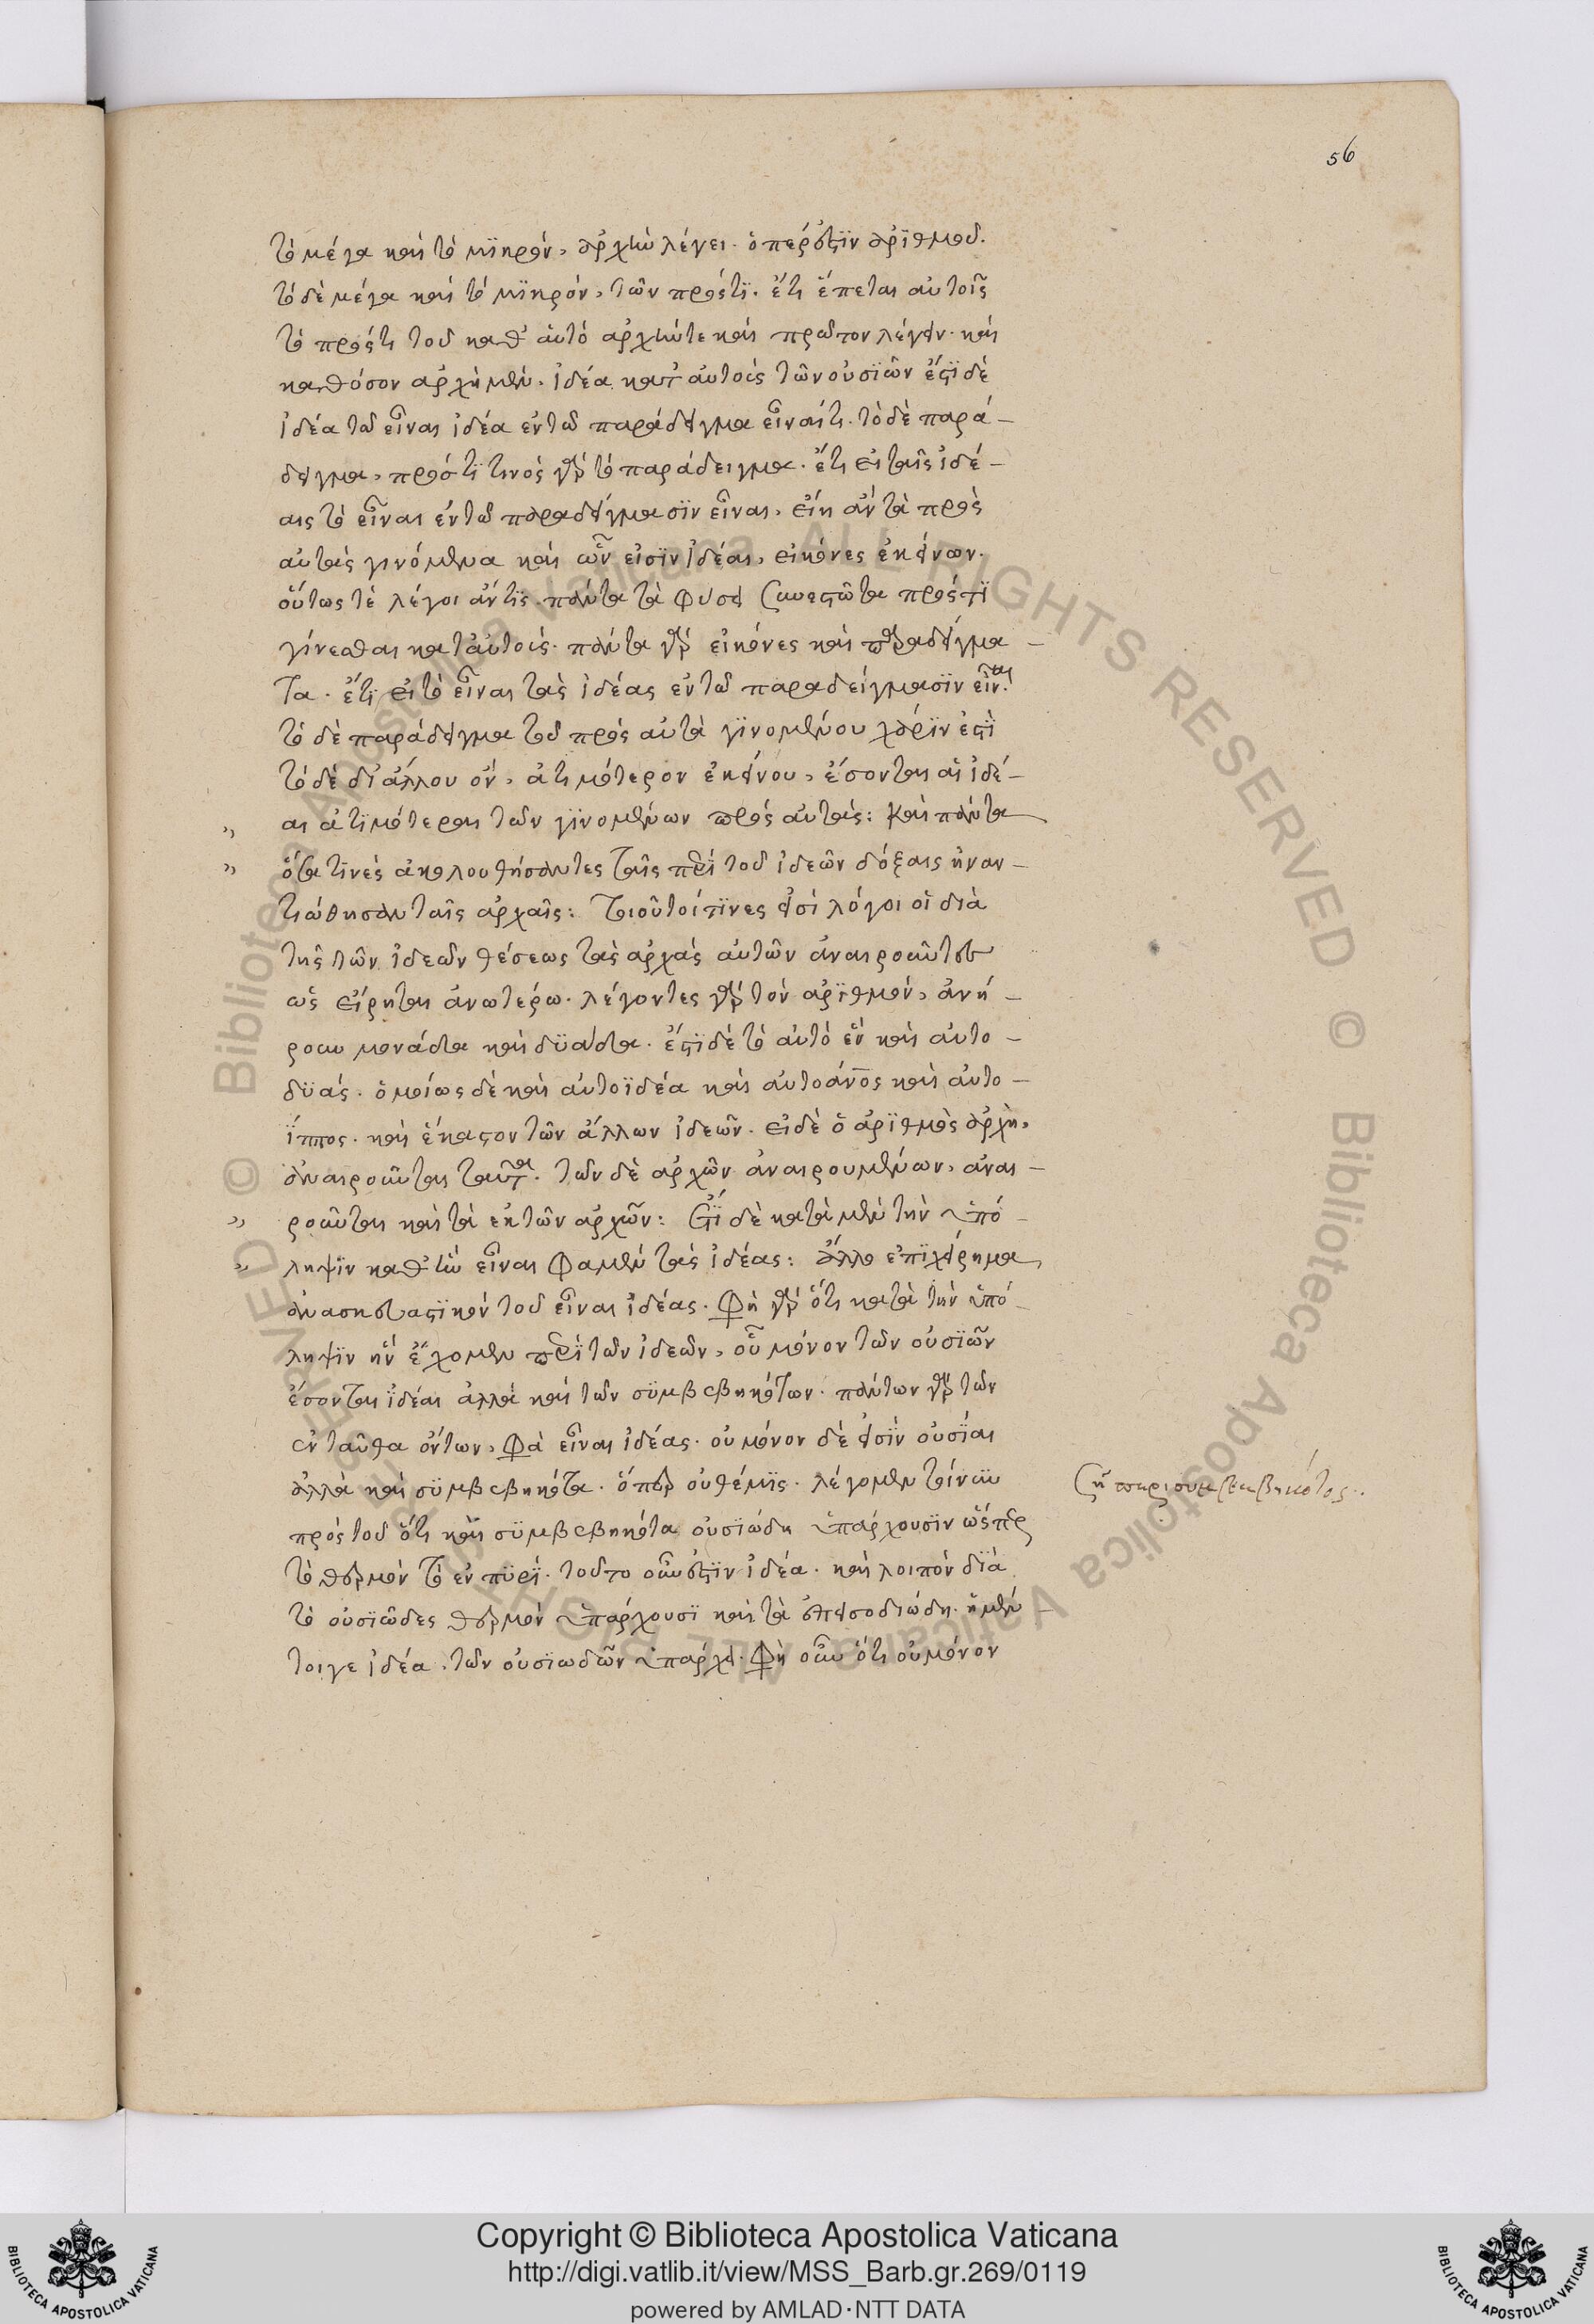 56
τὸ μέγα καὶ τὸ μϊκρόν, ἀρχὴν λέγει. ὅπερ ἐστὶν ἀρϊθμοῦ.
τὸ δὲ μέγα καὶ τὸ μϊκρόν, τῶν πρός τϊ. ἔτι ἕπεται αὐτοῖς
τὸ πρός τι τοῦ καθ' αὑτό ἀρχήν τε καὶ πρῶτον λέγειν. καὶ
καθόσον ἀρχὴ μὲν, ἰδέα κατ' αὐτοὺς τῶν οὐσϊῶν ἔστϊ δὲ
ἰδέα τῶ εἶναι ἰδέα ἐν τῶ παράδειγμα εἶναί τι. τὸ δὲ παρά-
δειγμα, πρός τϊ τινὸς γὰρ τὸ παράδειγμα. ἔτι εἰ ταῖς ἰδέ-
αις τὸ εἶναι ἐν τῶ παραδείγμασϊν εἶναι, εἴη ἂν τὰ πρὸς
αὐτὰς γινόμενα καὶ ὧν εἰσϊν ἰδέαι, εἰκόνες ἐκείνων.
οὕτως τὲ λέγοι ἄν τϊς. πάντα τὰ φύσει συνεστῶτα πρός τϊ
γίνεσθαι κατ' αὐτούς. πάντα γὰρ εἰκόνες καὶ παραδείγμα-
τα. ἔτϊ εἰ τὸ εἶναι τὰς ἰδέας ἐν τῶ παραδείγμασϊν εἶναι.
τὸ δὲ παράδειγμα τοῦ πρὸς αὐτὰ γϊνομένου χάρϊν ἐστϊ
τὸ δὲ δϊ' ἄλλου ὄν, ἀτιμότερον ἐκείνου, ἔσονται αἱ ἰδέ-
„ αι ἀτϊμότεραι τῶν γϊνομένων πρὸς αὐτάς: Καὶ πάντα
„ ὅσα τϊνὲς ἀκολουθήσαντες ταῖς περὶ τοῦ ἰδεῶν δόξαις ἠναν-
τιώθησαν ταῖς ἀρχαῖς: Τοιοῦτοί τϊνες εἰσὶ λόγοι οἱ διὰ
τῆς τῶν ἰδεῶν θέσεως τὰς ἀρχὰς αὐτῶν ἀναιροῦντες
ὡς εἴρηται ἀνωτέρω. λέγοντες γὰρ τὸν ἀρϊθμόν, ἀνή-
ρουν μονάδα καὶ δϋάδα. ἔστϊ δὲ τὸ αὐτὸ ἓν καὶ αὐτο-
δϋάς. ὁμοίως δὲ καὶ αὐτοϊδέα καὶ αὐτοάνος καὶ αὐτο-
ΐππος. καὶ ἕκαστον τῶν ἄλλων ἰδεῶν. εἰ δὲ ὁ ἀρϊθμὸς ἀρχὴ,
ἀναιροῦνται ταῦτα. τῶν δὲ ἀρχῶν ἀναιρουμένων, ἀναι-
„ ροῦνται καὶ τὰ ἐκ τῶν ἀρχῶν: Ἔτϊ δὲ κατὰ μὲν τὴν ὑπό-
„ ληψϊν καθ' ἣν εἶναι φαμὲν τὰς ἰδέας: Ἄλλο ἐπϊχείρημα
ἀνασκευαστϊκὸν τοῦ εἶναι ἰδέας. φὴ γὰρ ὅτι κατὰ τὴν ὑπό-
ληψϊν ἣν ἔχομεν περὶ τῶν ἰδεῶν, οὐ μόνον τῶν οὐσϊῶν
ἔσονται ἰδέαι ἀλλὰ καὶ τῶν σϋμβεβηκότων. πάντων γὰρ τῶν
ἐνταῦθα ὄντων, φὰ εἶναι ἰδέας. οὐ μόνον δὲ εἰσϊν οὐσϊαι
ἀλλὰ καὶ σϋμβεβηκότα. ὅπερ οὐ θέμϊς. λέγομεν τοίνυν
πρὸς τοῦ ὅτι κἂν σϋμβεβηκότα οὐσϊώδη ὑπάρχουσϊν ὥσπερ
τὸ θερμὸν τὸ ἐν πϋρϊ. τοῦτο οὖν ἐστϊν ἰδέα. καὶ λοιπὸν δϊὰ
τὸ οὐσϊῶδες θερμὸν ὑπάρχουσϊ καὶ τὰ ἐπεισοδιώδη. ἡ μέν-
τοιγε ἰδέα, τῶν οὐσϊωδῶν ὑπάρχει. φὴ οὖν ὅτι οὐ μόνον